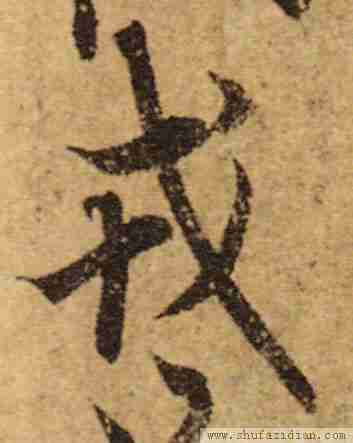 戎
www.shufazidian.com